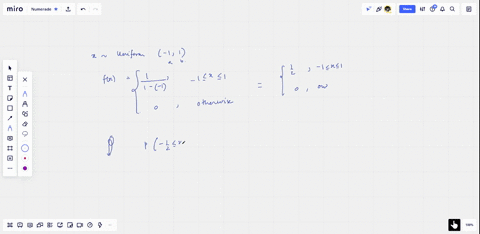 miro Numerade Share
x ~ Uniform (-1, 1)
a b
f(x) = { 1 / (1-(-1)), -1 ≤ x ≤ 1 = { 1/2, -1 ≤ x ≤ 1
0, otherwise 0, ow
P (-1/2 ≤ x
100%